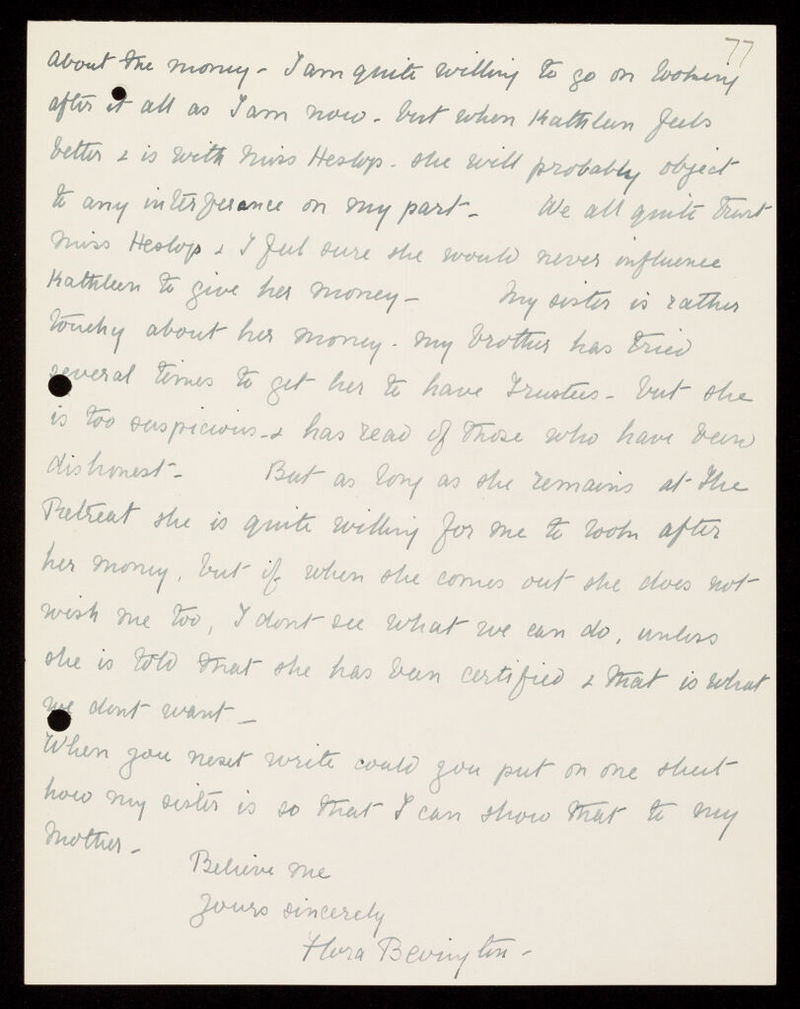 77
about the money - I am quite willing to go on looking
after it all as I am now - but when Kathleen feels
better & is with Miss Heslop - she will probably object
to any interferance on my part - We all quite trust
Miss Heslop & I feel sure she would never influence
Kathleen to give her money - My sister is rather
touchy about her money - my brother has tried
several times to get her to have Trustees - but she
is too suspicious - & has read of those who have been
dishonest - But as long as she remains at The
Retreat she is quite willing for me to look after
her money, but if when she comes out she does not
wish me too, I dont see what we can do, unless
she is told that she has been certified & that is what
we dont want -
When you next write could you put on one sheet
how my sister is so that I can show that to my
Mother -
Believe me
Yours sincerely
Flora Bevington -